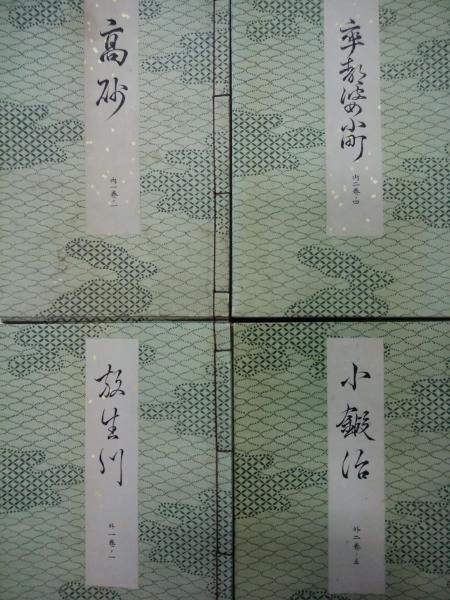 高砂
内一巻ノ一
卒都婆小町
内二巻ノ四
放生川
外一巻ノ一
小鍛冶
外二巻ノ五